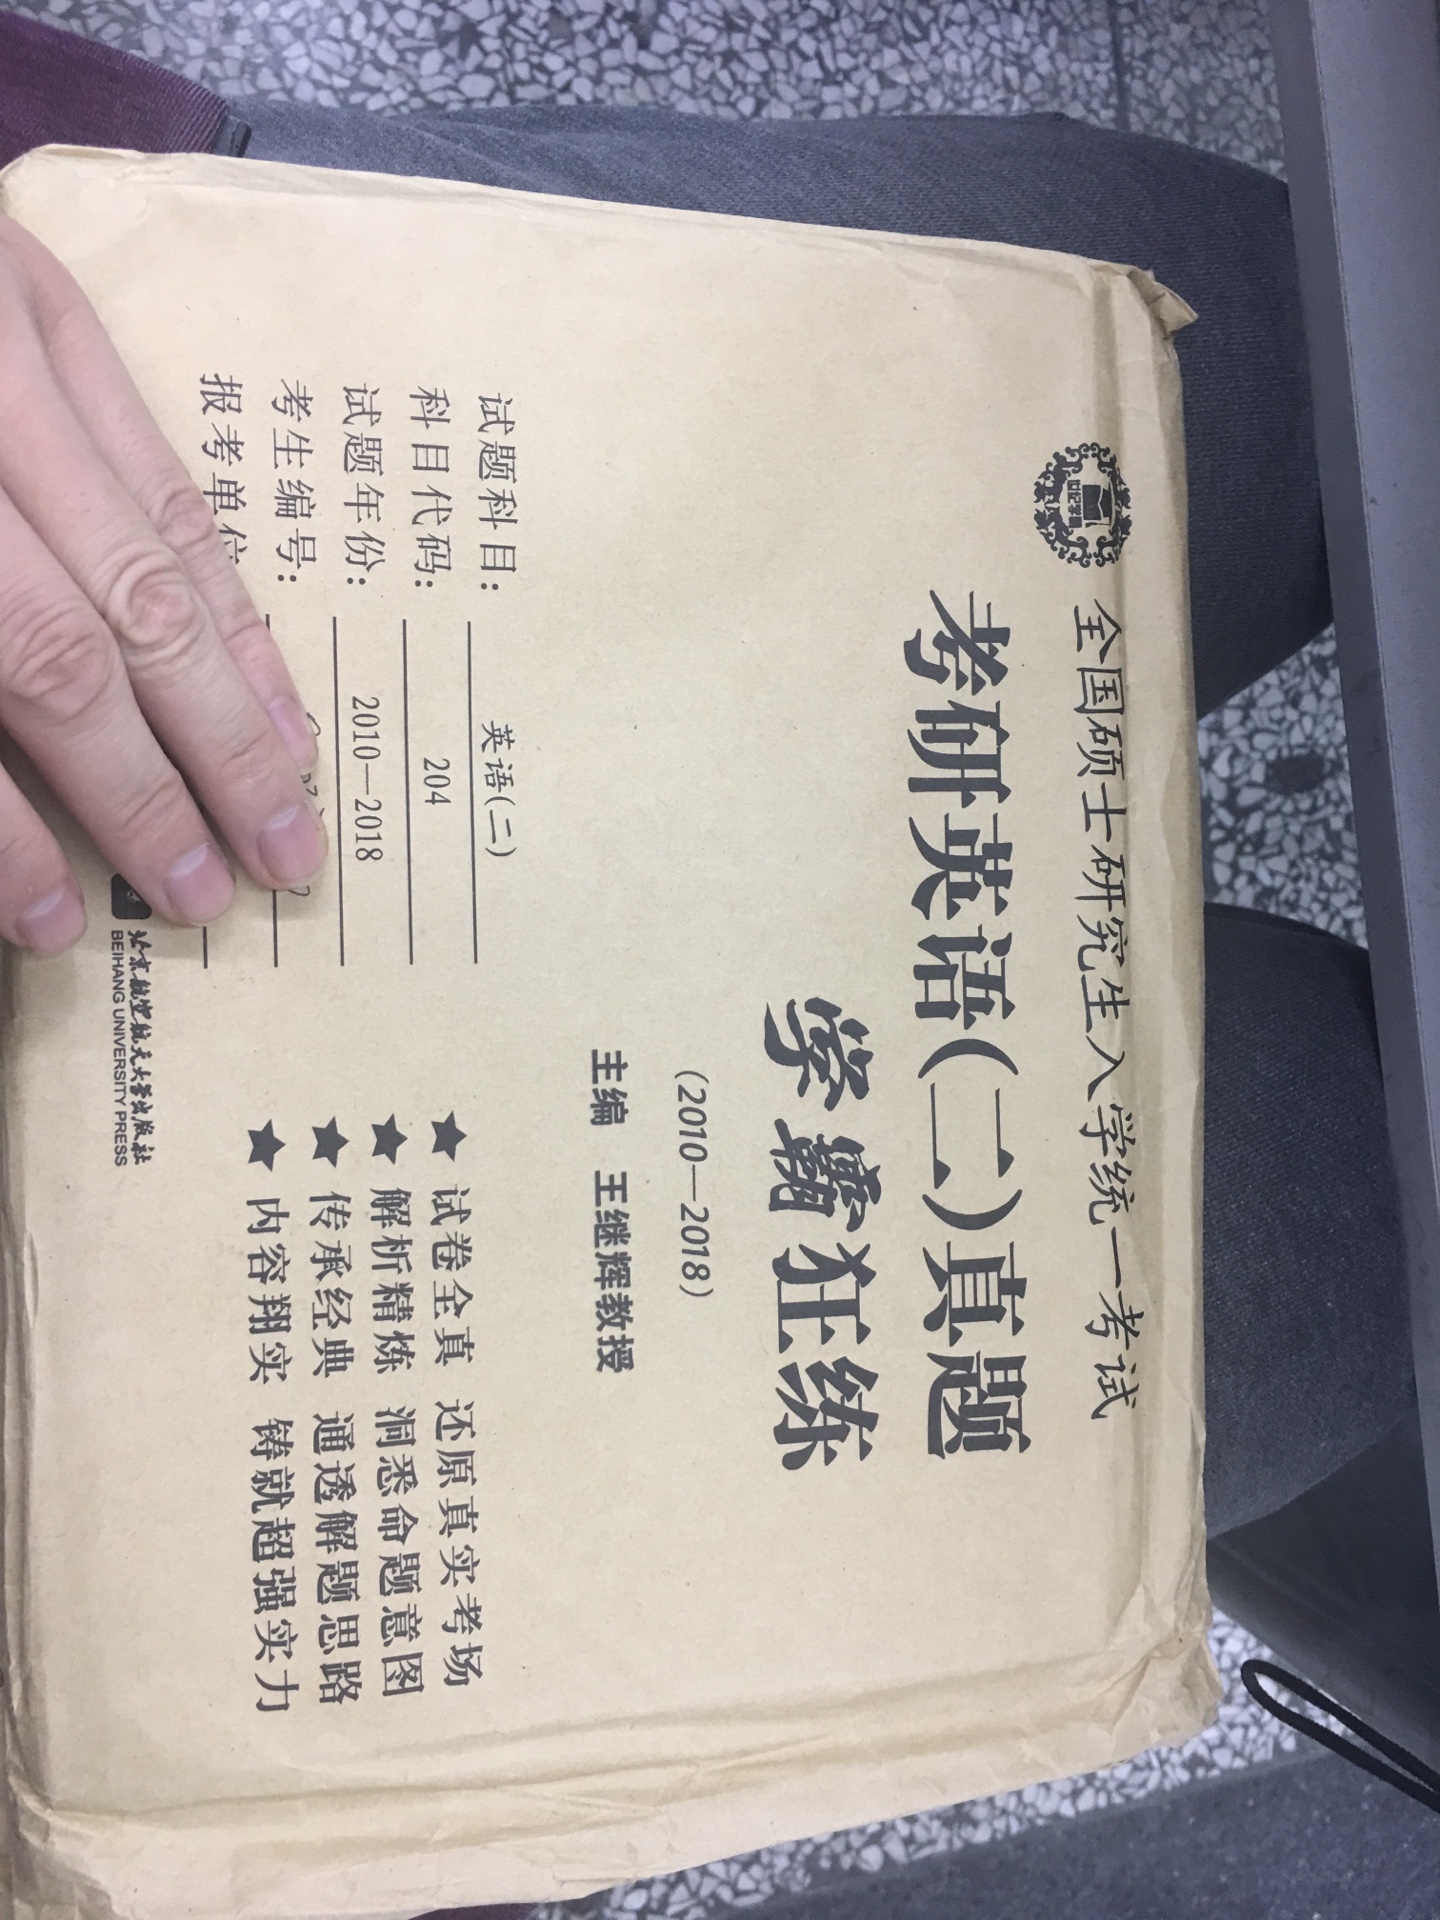 世纪云图
全国硕士研究生入学统一考试
考研英语(二)真题
学霸狂练
(2010—2018)
主编 王继辉教授
试题科目: 英语(二)
科目代码: 204
试题年份: 2010—2018
考生编号:
报考单位
★ 试卷全真 还原真实考场
★ 解析精炼 洞悉命题意图
★ 传承经典 通透解题思路
★ 内容翔实 铸就超强实力
北京航空航天大学出版社
BEIHANG UNIVERSITY PRESS